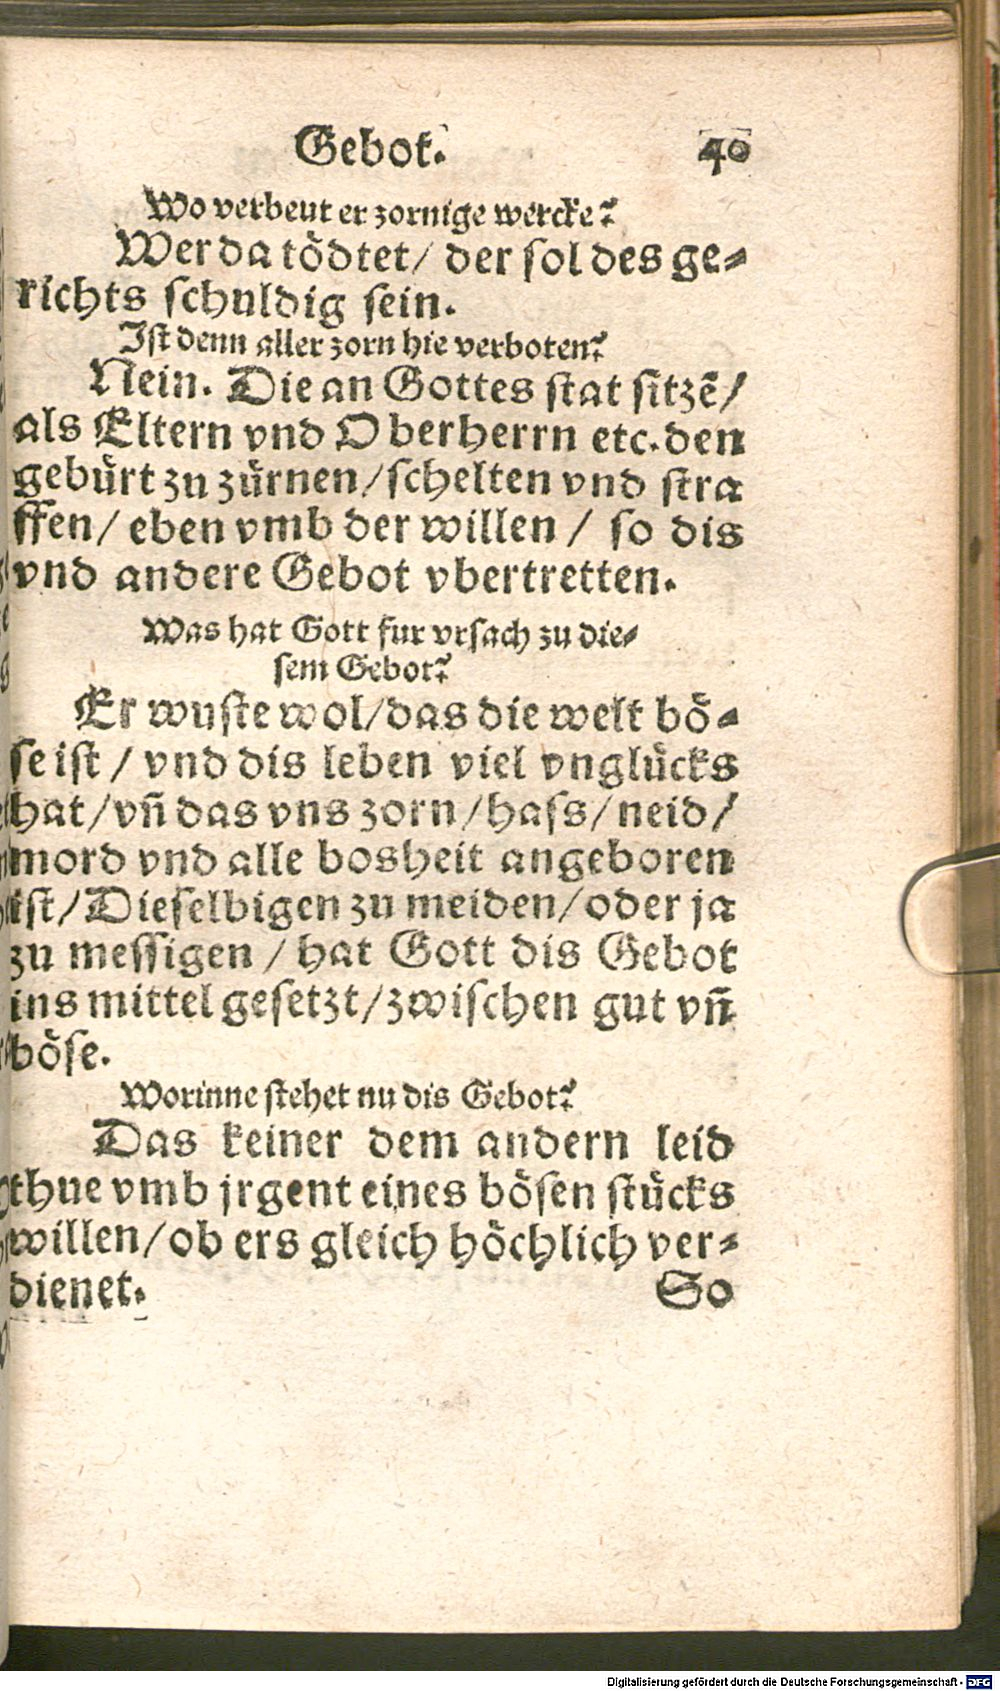 Gebot. 40
Wo verbeut er zornige wercke?
Wer da tödtet/ der sol des ge-
richts schuldig sein.
Ist denn aller zorn hie verboten?
Nein. Die an Gottes stat sitzē/
als Eltern vnd Oberherrn etc. den
gebürt zu zürnen/ schelten vnd stra
ffen/ eben vmb der willen / so dis
vnd andere Gebot vbertretten.
Was hat Gott fur vrsach zu die-
sem Gebot?
Er wuste wol/ das die welt bö-
se ist / vnd dis leben viel vnglücks
hat/ vn̄ das vns zorn/ hass/ neid/
mord vnd alle bosheit angeboren
ist/ Dieselbigen zu meiden/ oder ja
zu messigen / hat Gott dis Gebot
ins mittel gesetzt/ zwischen gut vn̄
böse.
Worinne stehet nu dis Gebot?
Das keiner dem andern leid
thue vmb jrgent eines bösen stücks
willen/ ob ers gleich höchlich ver-
dienet. So
Digitalisierung gefördert durch die Deutsche Forschungsgemeinschaft - DFG